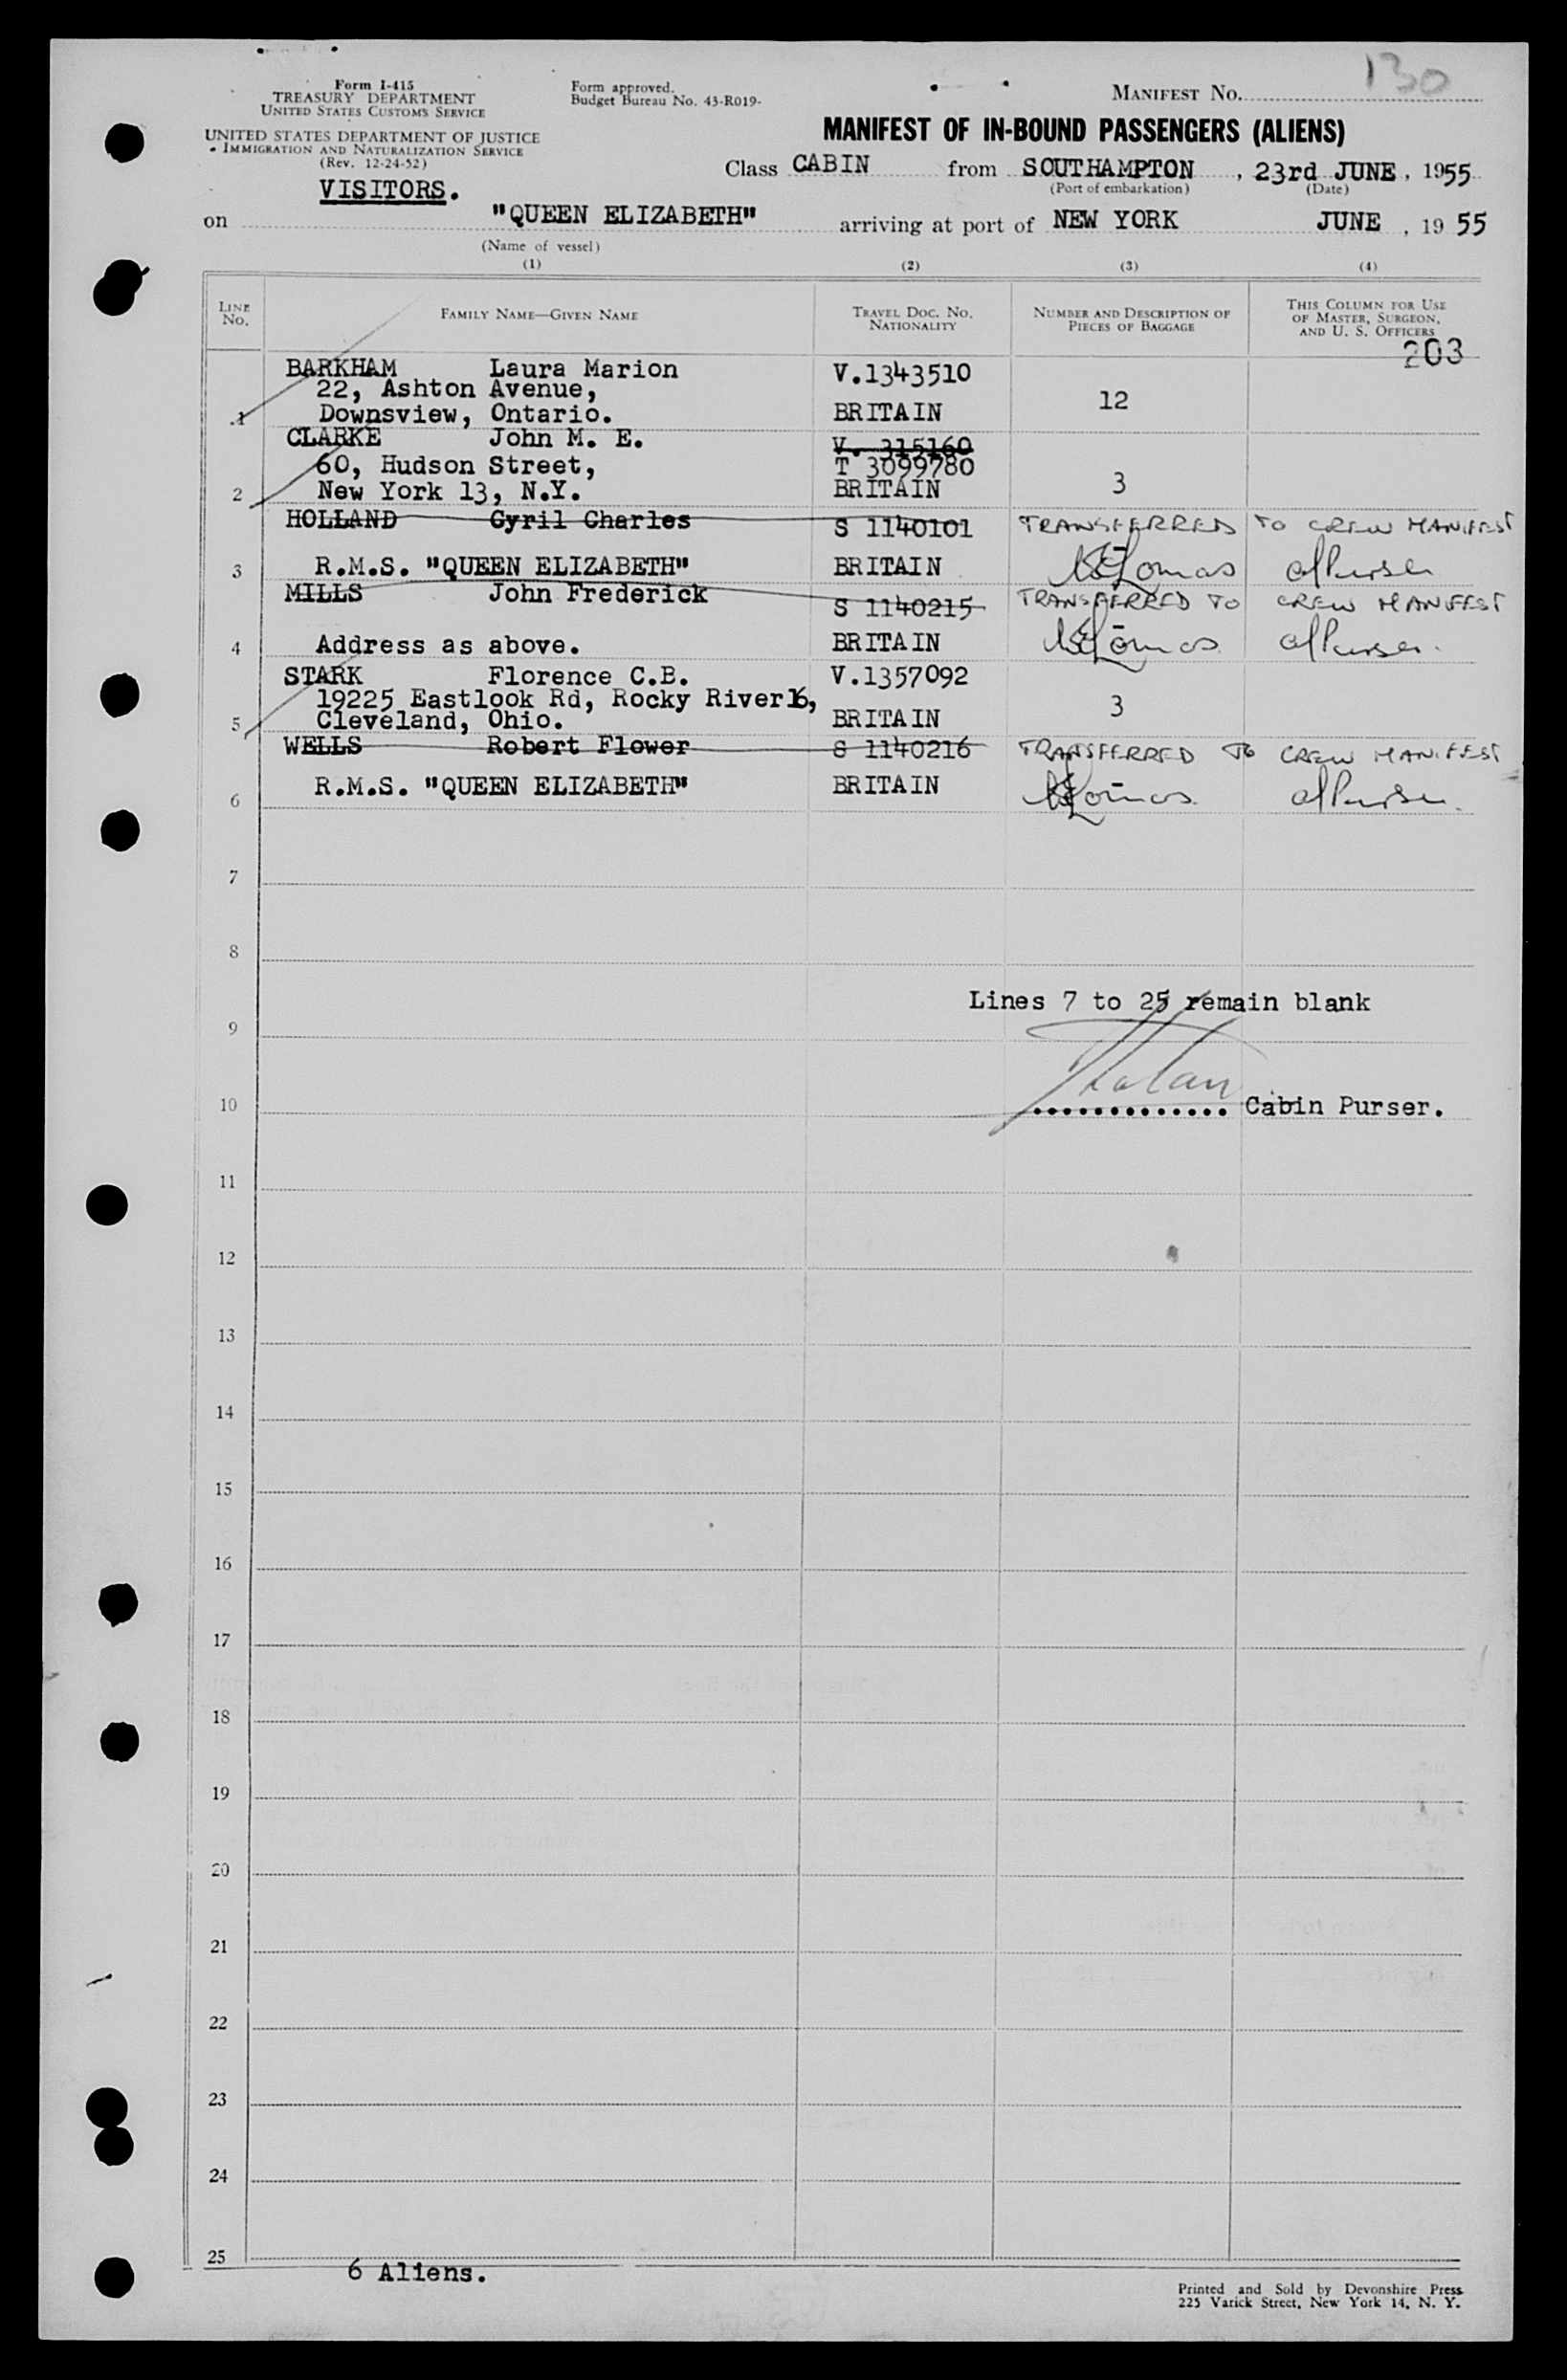 130
Form I-415
TREASURY DEPARTMENT
UNITED STATES CUSTOMS SERVICE
Form approved.
Budget Bureau No. 43-R019-
MANIFEST No.
UNITED STATES DEPARTMENT OF JUSTICE
IMMIGRATION AND NATURALIZATION SERVICE
(Rev. 12-24-52)
MANIFEST OF IN-BOUND PASSENGERS (ALIENS)
Class CABIN from SOUTHAMPTON, 23rd JUNE, 1955
(Port of embarkation) (Date)
VISITORS.
on "QUEEN ELIZABETH" arriving at port of NEW YORK JUNE, 19 55
(Name of vessel)
(1) (2) (3) (4)
LINE No. FAMILY NAME—GIVEN NAME TRAVEL DOC. No. NATIONALITY NUMBER AND DESCRIPTION OF PIECES OF BAGGAGE THIS COLUMN FOR USE OF MASTER, SURGEON, AND U. S. OFFICERS
203
BARKHAM Laura Marion V.1343510
22, Ashton Avenue, 12
1 Downsview, Ontario. BRITAIN
CLARKE John M. E. V. 315160
60, Hudson Street, T 3099780
2 New York 13, N.Y. BRITAIN 3
HOLLAND Cyril Charles S 1140101 TRANSFERRED TO CREW MANIFEST
3 R.M.S. "QUEEN ELIZABETH" BRITAIN
MILLS John Frederick S 1140215 TRANSFERRED TO CREW MANIFEST
4 Address as above. BRITAIN
STARK Florence C.B. V.1357092
19225 Eastlook Rd, Rocky River 16, 3
5 Cleveland, Ohio. BRITAIN
WELLS Robert Flower S 1140216 TRANSFERRED TO CREW MANIFEST
6 R.M.S. "QUEEN ELIZABETH" BRITAIN
7
8
Lines 7 to 25 remain blank
9
10 ............. Cabin Purser.
11
12
13
14
15
16
17
18
19
20
21
22
23
24
25
6 Aliens.
Printed and Sold by Devonshire Press
225 Varick Street, New York 14, N. Y.